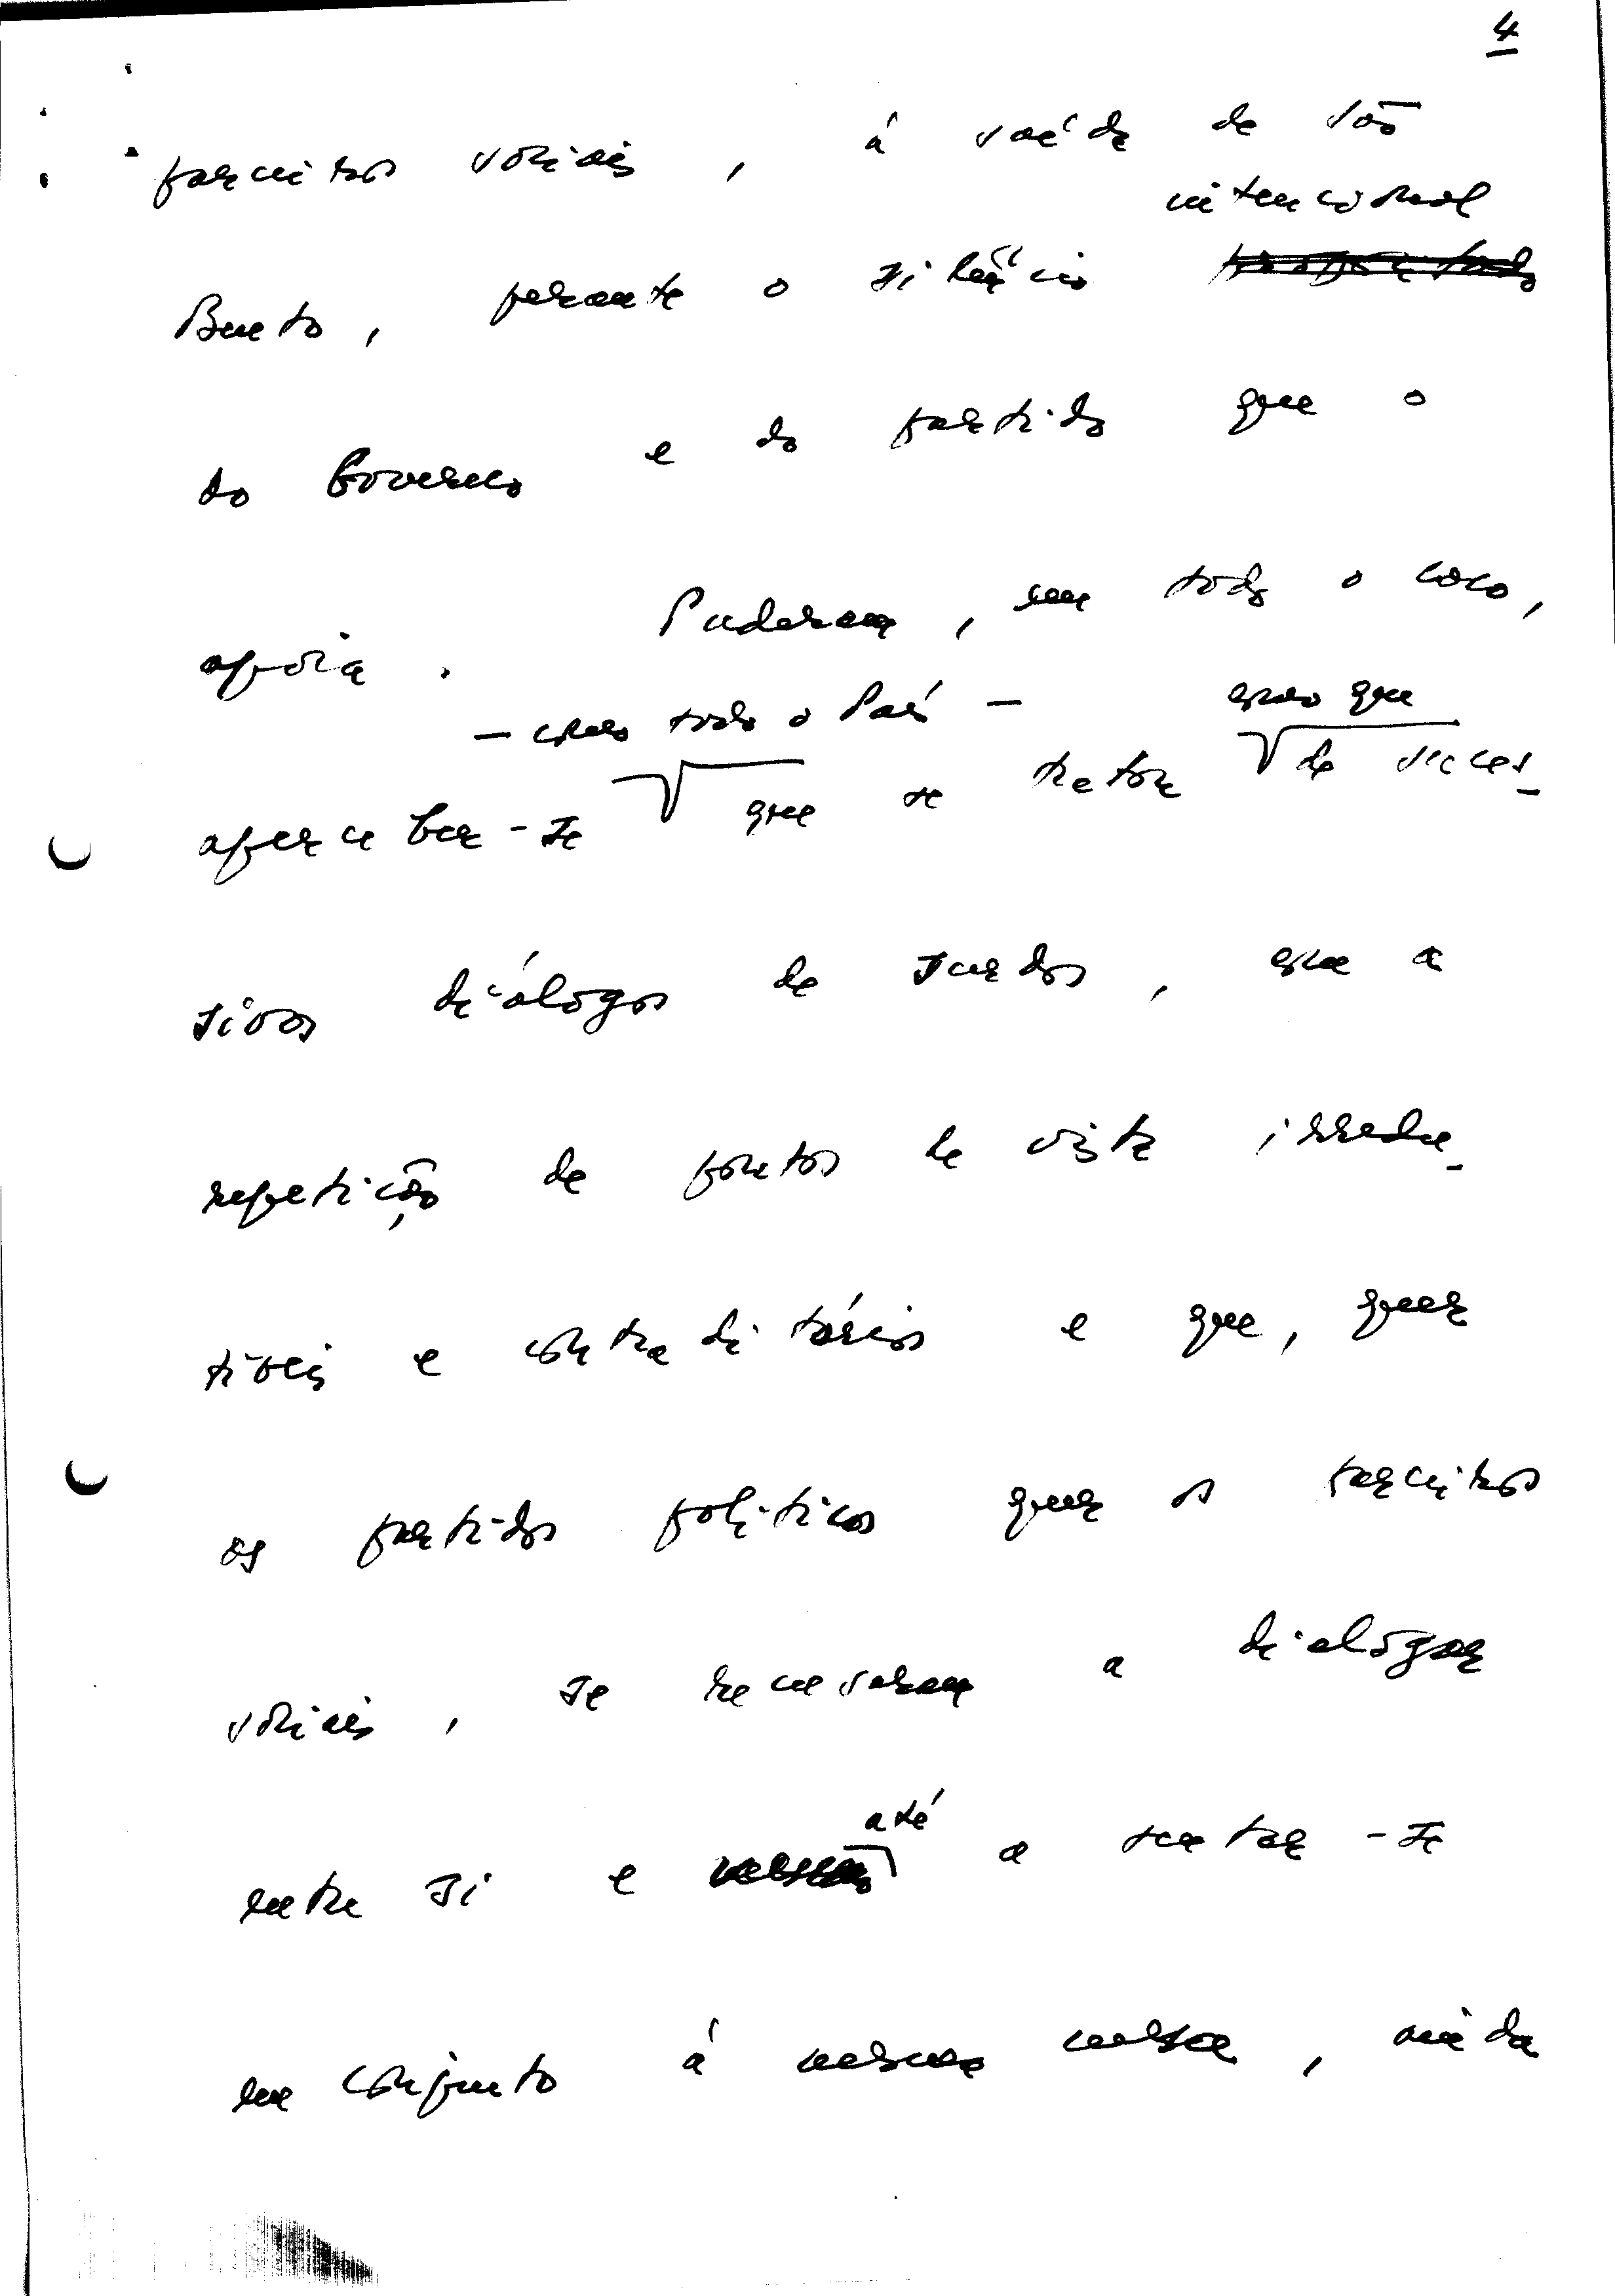 4
parceiros sociais, à saída de São
intencional
Bento, perante o silêncio
do Governo e do partido que o
apoia. Puderam, em todo o caso,
— como todo o País — mais que
aperceber-se que se tratou de suces-
sivos diálogos de surdos, era a
repetição de pontos de vista irredu-
tíveis e contraditórios e que, quer
os partidos políticos quer os parceiros
sociais, se recusaram a dialogar
até
entre si e a sentar-se
em conjunto à mesma mesa, ainda